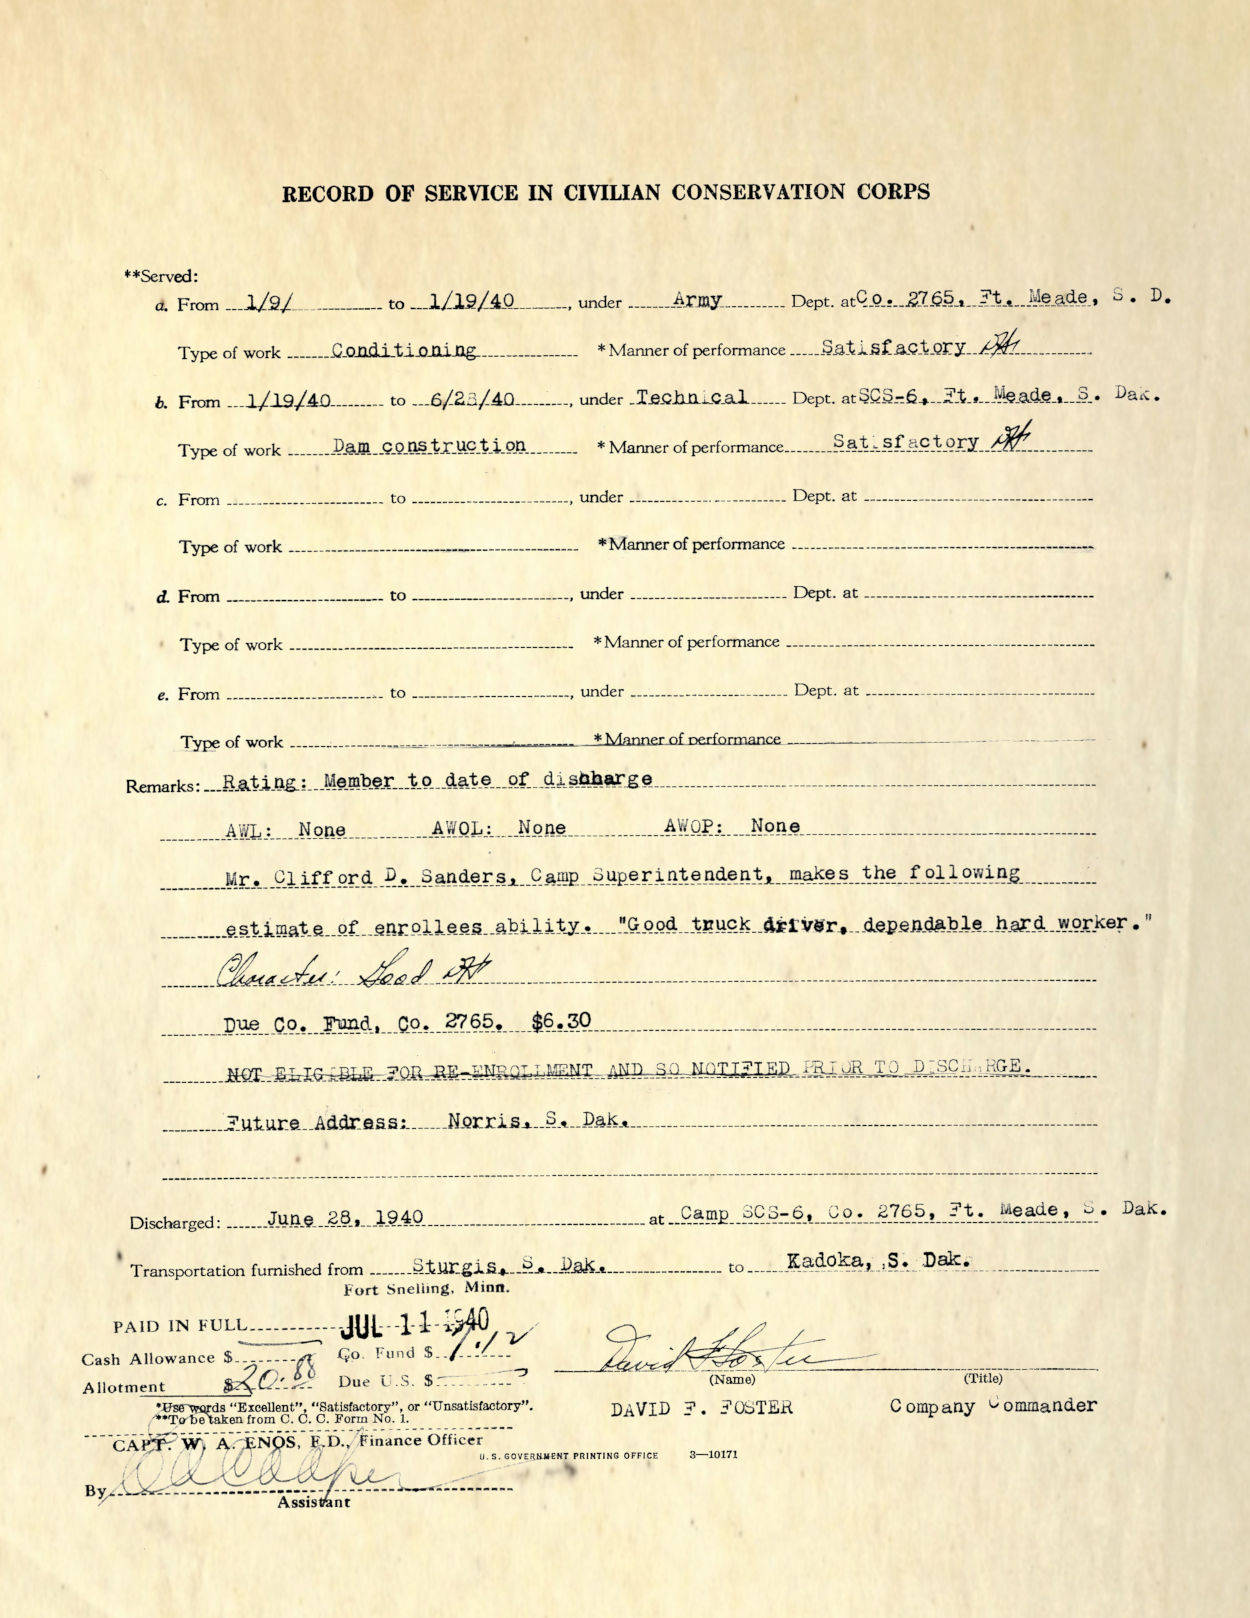 RECORD OF SERVICE IN CIVILIAN CONSERVATION CORPS
**Served:
a. From 1/9/ to 1/19/40, under Army Dept. at Co. 2765, Ft. Meade, S. D.
Type of work Conditioning *Manner of performance Satisfactory
b. From 1/19/40 to 6/28/40, under Technical Dept. at SCS-6, Ft. Meade, S. Dak.
Type of work Dam construction *Manner of performance Satisfactory
c. From to , under Dept. at
Type of work *Manner of performance
d. From to , under Dept. at
Type of work *Manner of performance
e. From to , under Dept. at
Type of work *Manner of performance
Remarks: Rating: Member to date of discharge
AWL: None AWOL: None AWOP: None
Mr. Clifford D. Sanders, Camp Superintendent, makes the following
estimate of enrollees ability. "Good truck driver, dependable hard worker."
Character: Good
Due Co. Fund, Co. 2765. $6.30
NOT ELIGIBLE FOR RE-ENROLLMENT AND SO NOTIFIED PRIOR TO DISCHARGE.
Future Address: Norris, S. Dak.
Discharged: June 28, 1940 at Camp SCS-6, Co. 2765, Ft. Meade, S. Dak.
Transportation furnished from Sturgis, S. Dak. to Kadoka, S. Dak.
Fort Snelling, Minn.
PAID IN FULL JUL 11 1940
Cash Allowance $ Co. Fund $
David F Foster
Allotment $ Due U.S. $
(Name) (Title)
*Use words "Excellent", "Satisfactory", or "Unsatisfactory".
DAVID F. FOSTER Company Commander
**To be taken from C. C. C. Form No. 1.
CAPT. W. A. ENOS, F.D., Finance Officer
U. S. GOVERNMENT PRINTING OFFICE 3—10171
By
Assistant